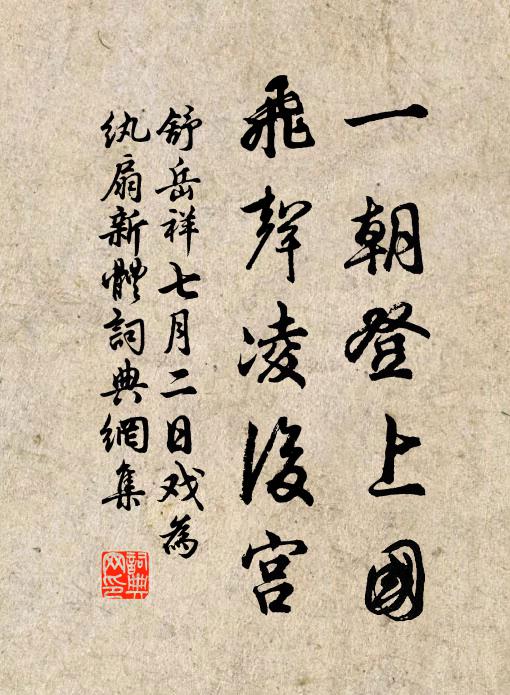 一朝登上國
飛聲凌後宮
舒岳祥七月二日戏為
纨扇新體詞典網集
詞典网印